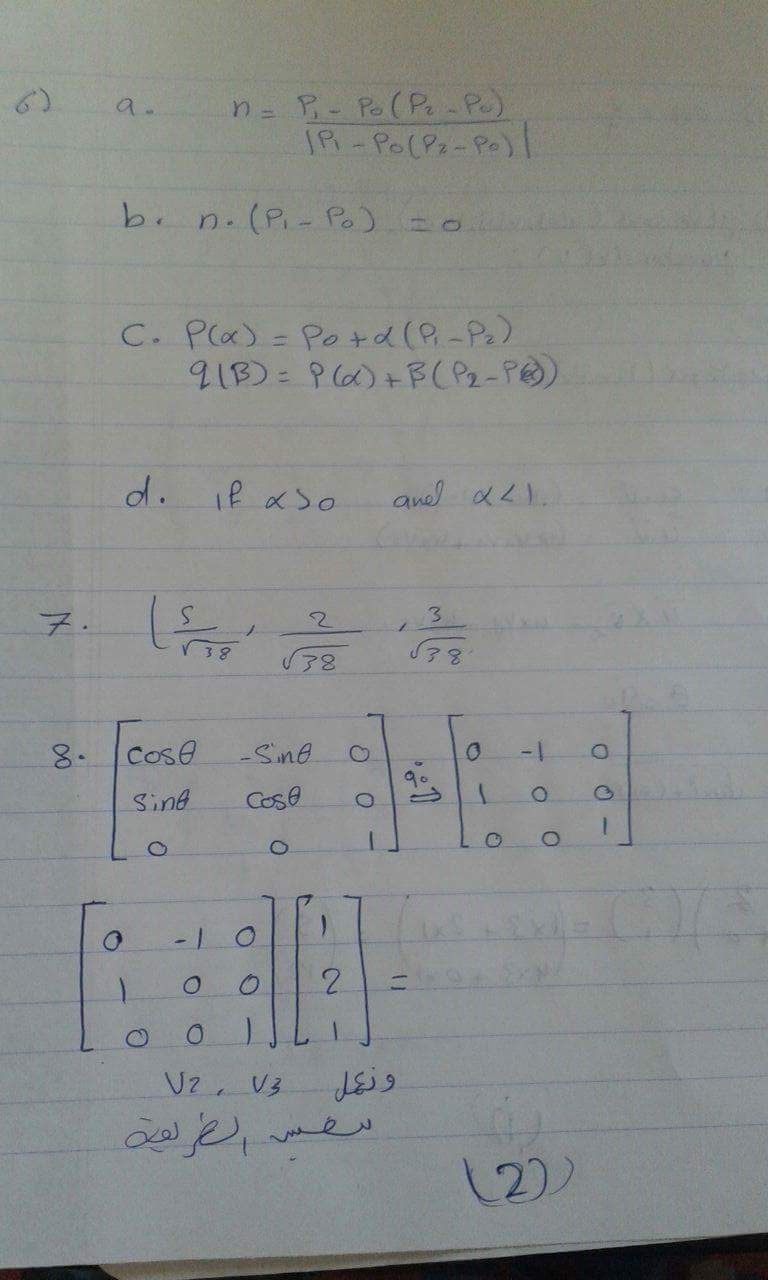 6) a. n = P₁ - P₀ (P₂ - P₀)
|P₁ - P₀ (P₂ - P₀)|
b. n. (P₁ - P₀) = 0
C. P(α) = P₀ + α (P₁ - P₂)
q(β) = P(α) + β (P₂ - P(α))
d. if α > 0 and α < 1.
7. ( 5/√38 , 2/√38 , 3/√38
8. [ cosθ -sinθ 0 ] 90° ⇒ [ 0 -1 0 ]
[ sinθ cosθ 0 ] [ 1 0 0 ]
[ 0 0 1 ] [ 0 0 1 ]
[ 0 -1 0 ] [ 1 ]
[ 1 0 0 ] [ 2 ] =
[ 0 0 1 ] [ 1 ]
ونعمل V2 , V3
بنفس الطريقة
(2)